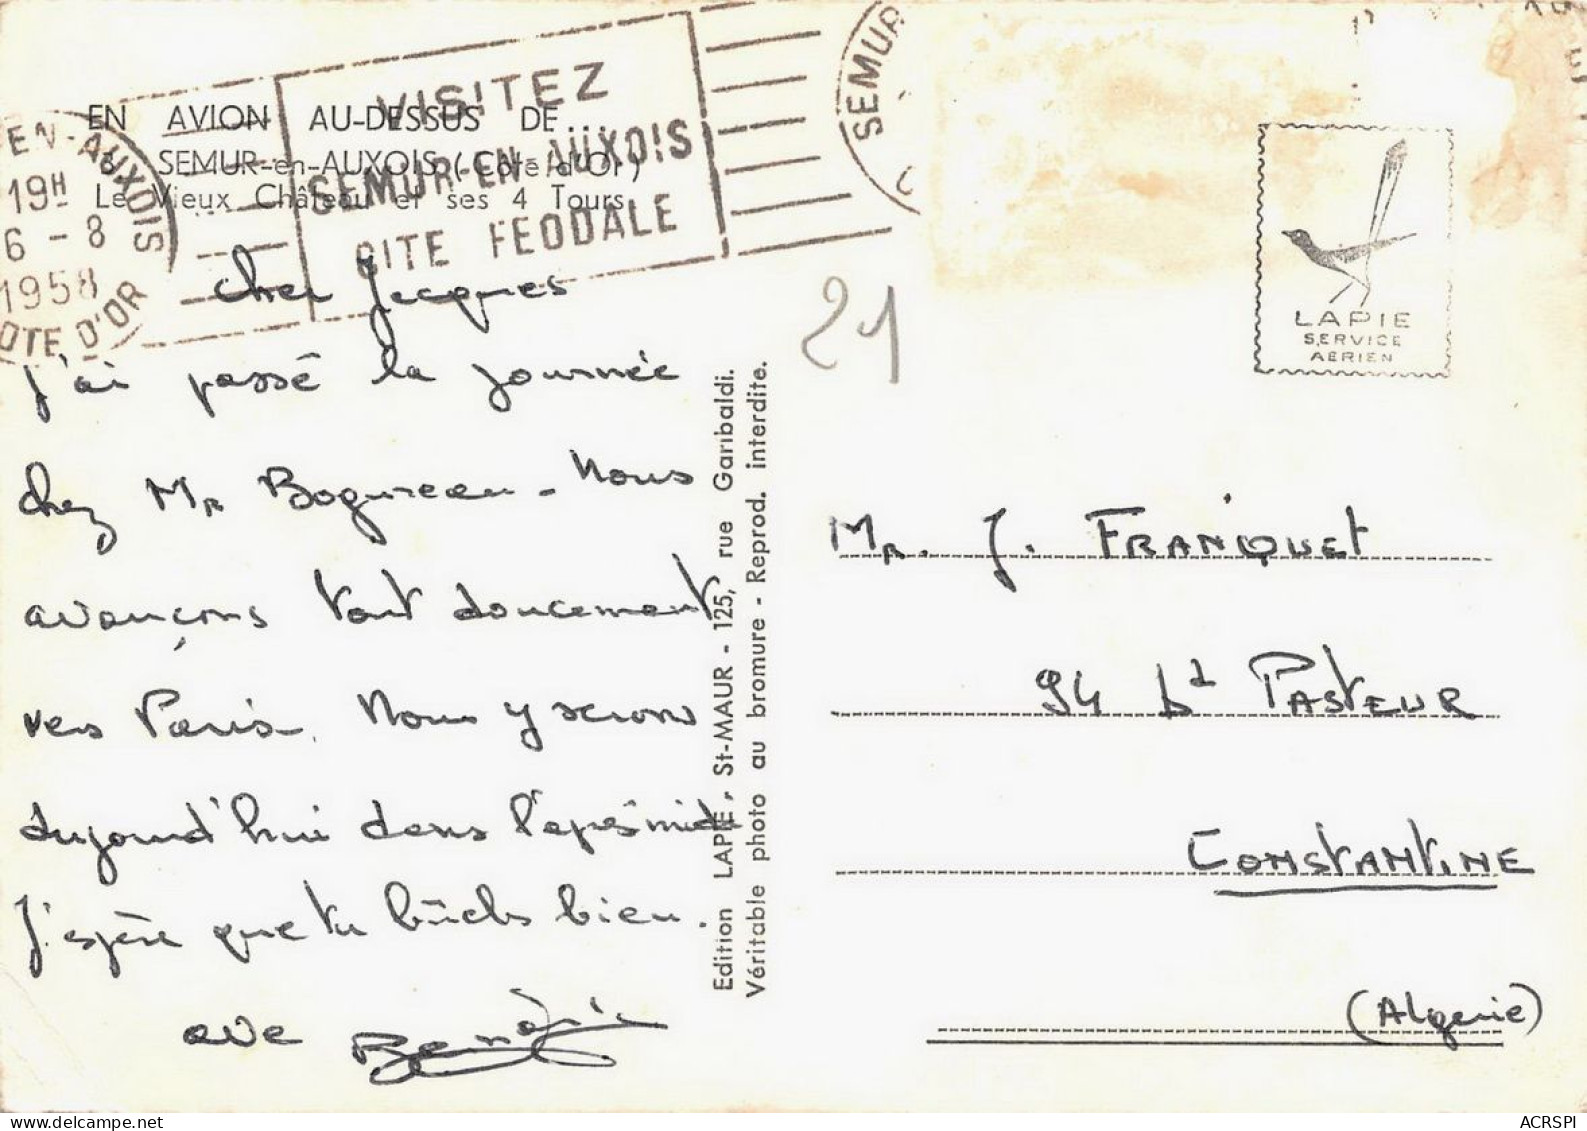 EN AVION AU-DESSUS DE ...
SEMUR-en-AUXOIS (Côte-d'Or)
Le Vieux Château et ses 4 Tours
EN-AUXOIS
19H
6 - 8
1958
COTE D'OR
VISITEZ
SEMUR-EN-AUXOIS
CITE FEODALE
SEMUR
21
LAPIE
SERVICE
AERIEN
cher Jacques
J'ai passé la journée
chez Mr Bogureau - Nous
avançons tout doucement
vers Paris. Nous y serons
aujourd'hui dans l'après midi
J'espère que tu bûches bien.
ave
Edition LAPIE, St-MAUR - 125, rue Garibaldi.
Véritable photo au bromure - Reprod. interdite.
Mr. J. FRANQUET
94 Bd PASTEUR
CONSTANTINE
(Algerie)
ACRSPI